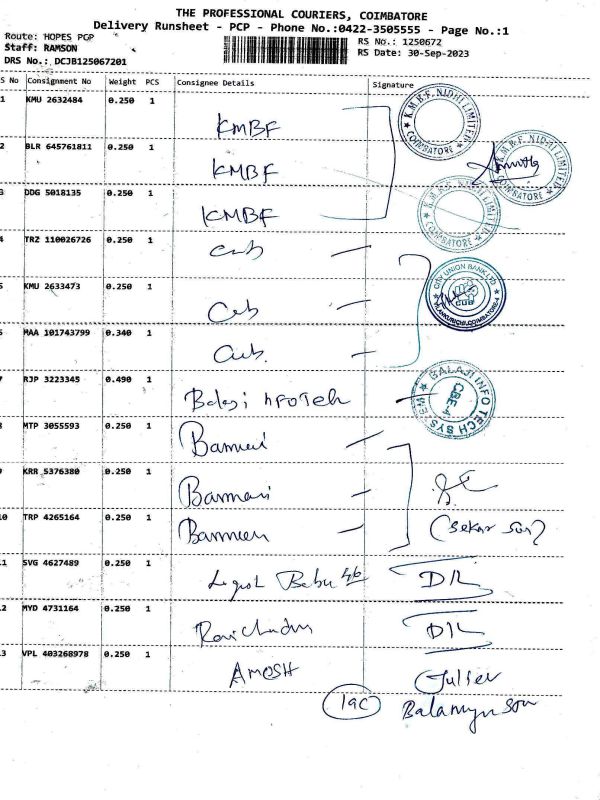 THE PROFESSIONAL COURIERS, COIMBATORE
Delivery Runsheet - PCP - Phone No.:0422-3505555 - Page No.:1
Route: HOPES PGP
Staff: RAMSON
DRS No.: DCJB125067201
RS No.: 1250672
RS Date: 30-Sep-2023
S No Consignment No Weight PCS Consignee Details Signature
1 KMU 2632484 0.250 1 KMBF
K.M.B.F. NIDHI LIMITED COIMBATORE
2 BLR 645761811 0.250 1 KMBF
K.M.B.F. NIDHI LIMITED COIMBATORE
3 DDG 5018135 0.250 1 KMBF
K.M.B.F. NIDHI LIMITED COIMBATORE
4 TRZ 110026726 0.250 1 Cub
5 KMU 2633473 0.250 1 Cub
CITY UNION BANK LTD CUB COIMBATORE-4
6 MAA 101743799 0.340 1 Cub.
7 RJP 3223345 0.490 1 Balaji InfoTech
BALAJI INFO TECH SYSTEM CBE-4
8 MTP 3055593 0.250 1
9 KRR 5376380 0.250 1
10 TRP 4265164 0.250 1 (Sekar Son)
11 SVG 4627489 0.250 1 Babu
12 MYD 4731164 0.250 1
13 VPL 403268978 0.250 1 AMOSH